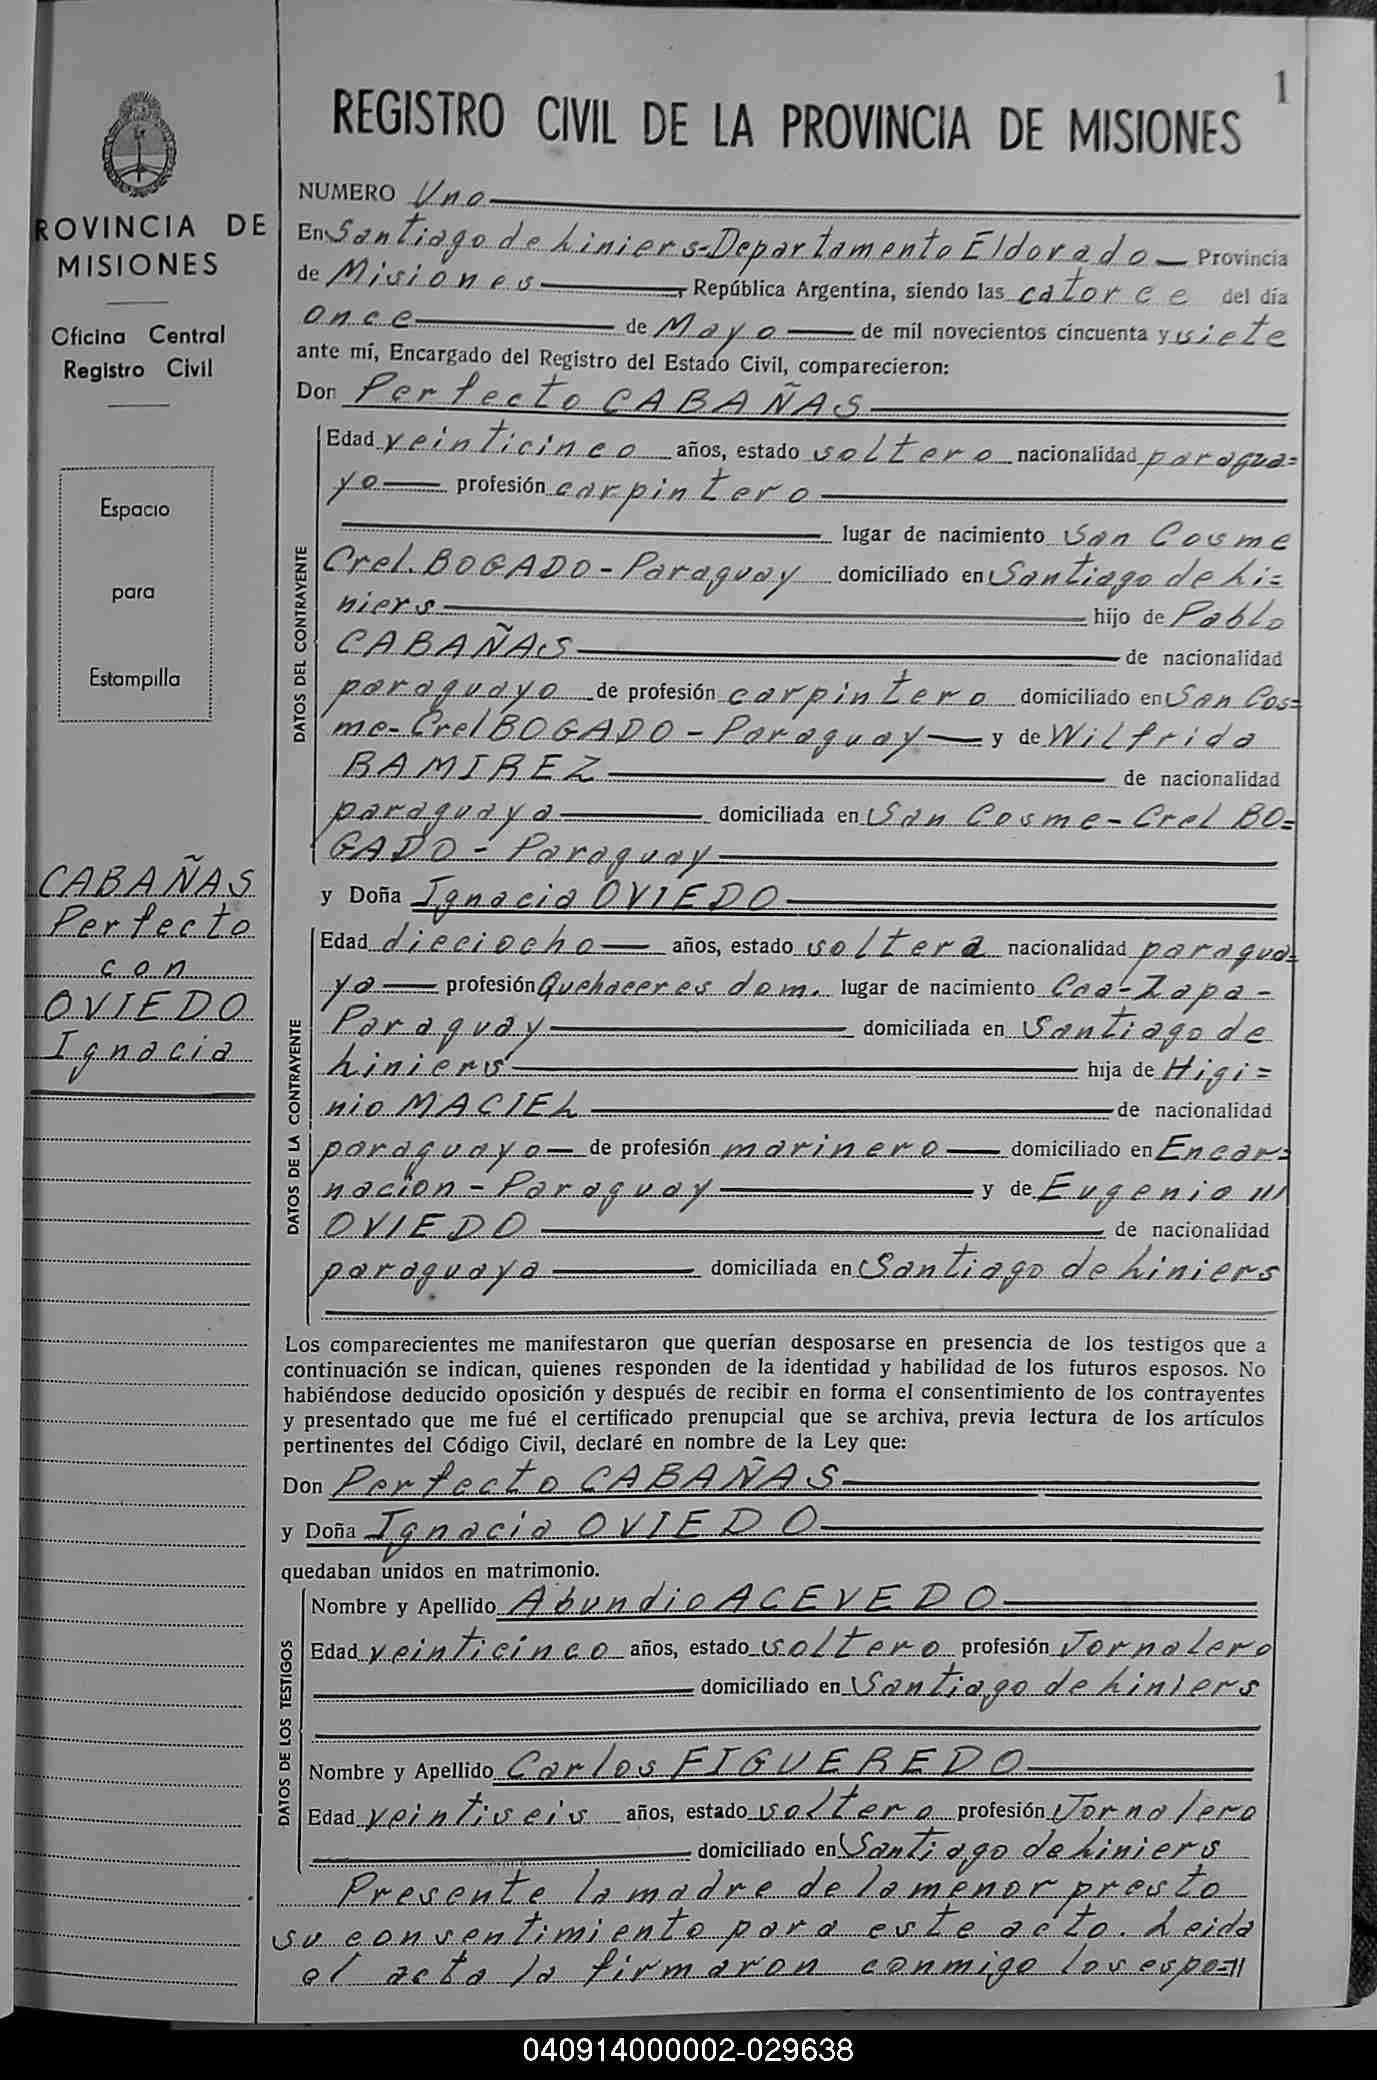 1
REGISTRO CIVIL DE LA PROVINCIA DE MISIONES
ROVINCIA DE
MISIONES
Oficina Central
Registro Civil
Espacio
para
Estampilla
CABAÑAS
Perfecto
con
OVIEDO
Ignacia
NUMERO Uno
En Santiago de Liniers-Departamento Eldorado Provincia
de Misiones, República Argentina, siendo las catorce del día
once de Mayo de mil novecientos cincuenta y siete
ante mí, Encargado del Registro del Estado Civil, comparecieron:
Don Perfecto CABAÑAS
DATOS DEL CONTRAYENTE
Edad veinticinco años, estado soltero nacionalidad paragua=
yo profesión carpintero
lugar de nacimiento San Cosme
Crel. BOGADO - Paraguay domiciliado en Santiago de Li=
niers hijo de Pablo
CABAÑAS de nacionalidad
paraguayo de profesión carpintero domiciliado en San Cos=
me-Crel BOGADO - Paraguay y de Wilfrida
RAMIREZ de nacionalidad
paraguaya domiciliada en San Cosme-Crel BO=
GADO - Paraguay
y Doña Ignacia OVIEDO
DATOS DE LA CONTRAYENTE
Edad dieciocho años, estado soltera nacionalidad paragua=
ya profesión Quehaceres dom. lugar de nacimiento Caa-Zapa-
Paraguay domiciliada en Santiago de
Liniers hija de Higi=
nio MACIEL de nacionalidad
paraguayo de profesión marinero domiciliado en Encar=
nacion - Paraguay y de Eugenia
OVIEDO de nacionalidad
paraguaya domiciliada en Santiago de Liniers
Los comparecientes me manifestaron que querían desposarse en presencia de los testigos que a
continuación se indican, quienes responden de la identidad y habilidad de los futuros esposos. No
habiéndose deducido oposición y después de recibir en forma el consentimiento de los contrayentes
y presentado que me fué el certificado prenupcial que se archiva, previa lectura de los artículos
pertinentes del Código Civil, declaré en nombre de la Ley que:
Don Perfecto CABAÑAS
y Doña Ignacia OVIEDO
quedaban unidos en matrimonio.
DATOS DE LOS TESTIGOS
Nombre y Apellido Abundio ACEVEDO
Edad veinticinco años, estado soltero profesión Jornalero
domiciliado en Santiago de Liniers
Nombre y Apellido Carlos FIGUEREDO
Edad veintiseis años, estado soltero profesión Jornalero
domiciliado en Santiago de Liniers
Presente la madre de la menor presto
su consentimiento para este acto. Leida
el acta la firmaron conmigo los espo=//
040914000002-029638